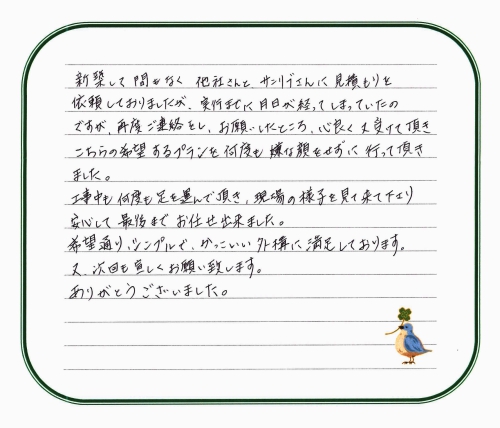 新築して間もなく 他社さんと、サンリブさんに見積もりを
依頼しておりましたが、実行までに月日が経ってしまっていたの
ですが、再度ご連絡をし、お願いしたところ、心良く又受けて頂き
こちらの希望するプランを何度も嫌な顔をせずに行って頂き
ました。
工事中も何度も足を運んで頂き、現場の様子を見て来て下さり
安心して最後までお任せ出来ました。
希望通り、シンプルで、かっこいい外構に満足しております。
又、次回も宜しくお願い致します。
ありがとうございました。